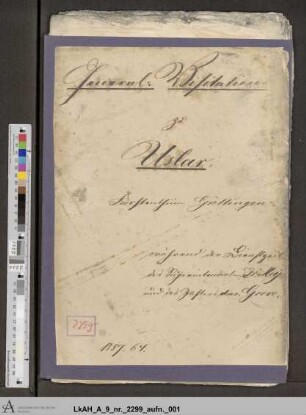 General-Visitation
zu
Uslar.
Fürstenthum Göttingen
während der Dienstzeit
des Superintendent
und des Pastor
2299
1857. 64.
LkAH_A_9_nr._2299_aufn._001